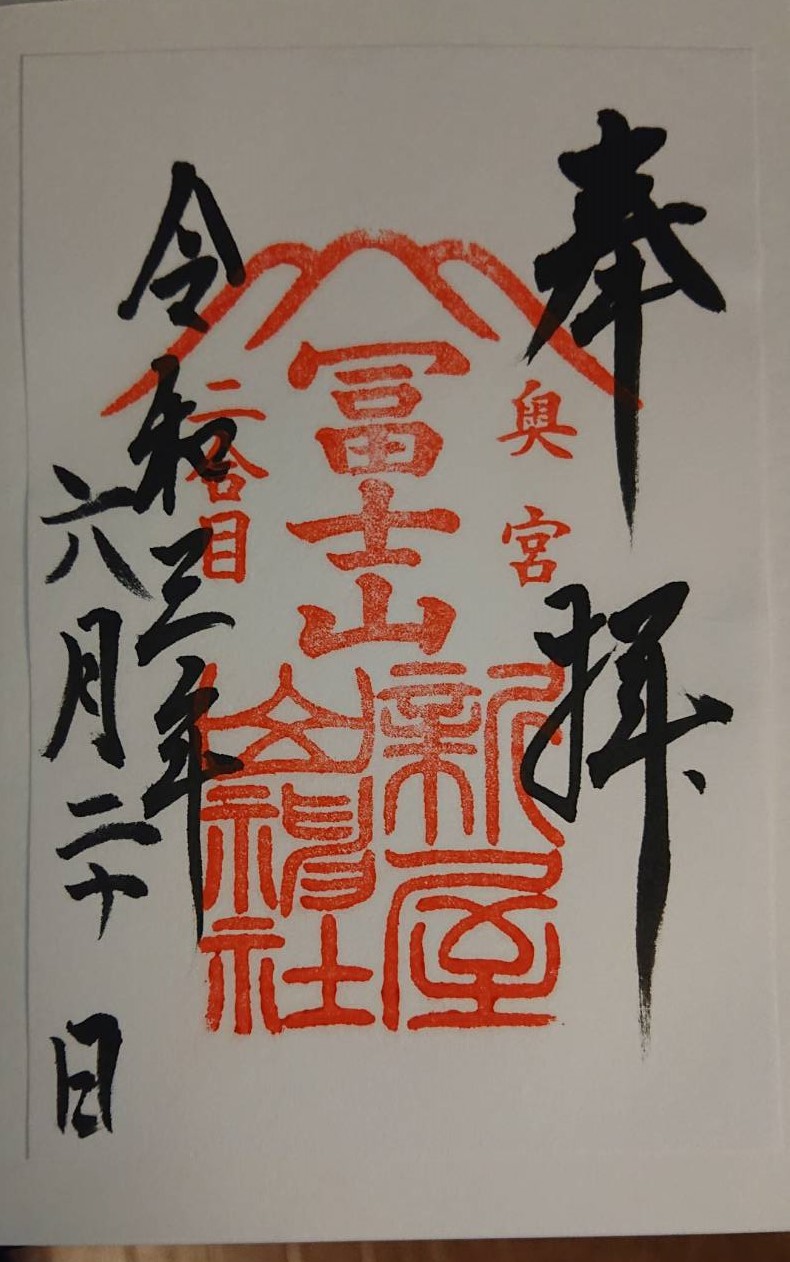 奉拝
奥宮
冨士山
二合目
新屋
山神社
令和三年
六月二十日